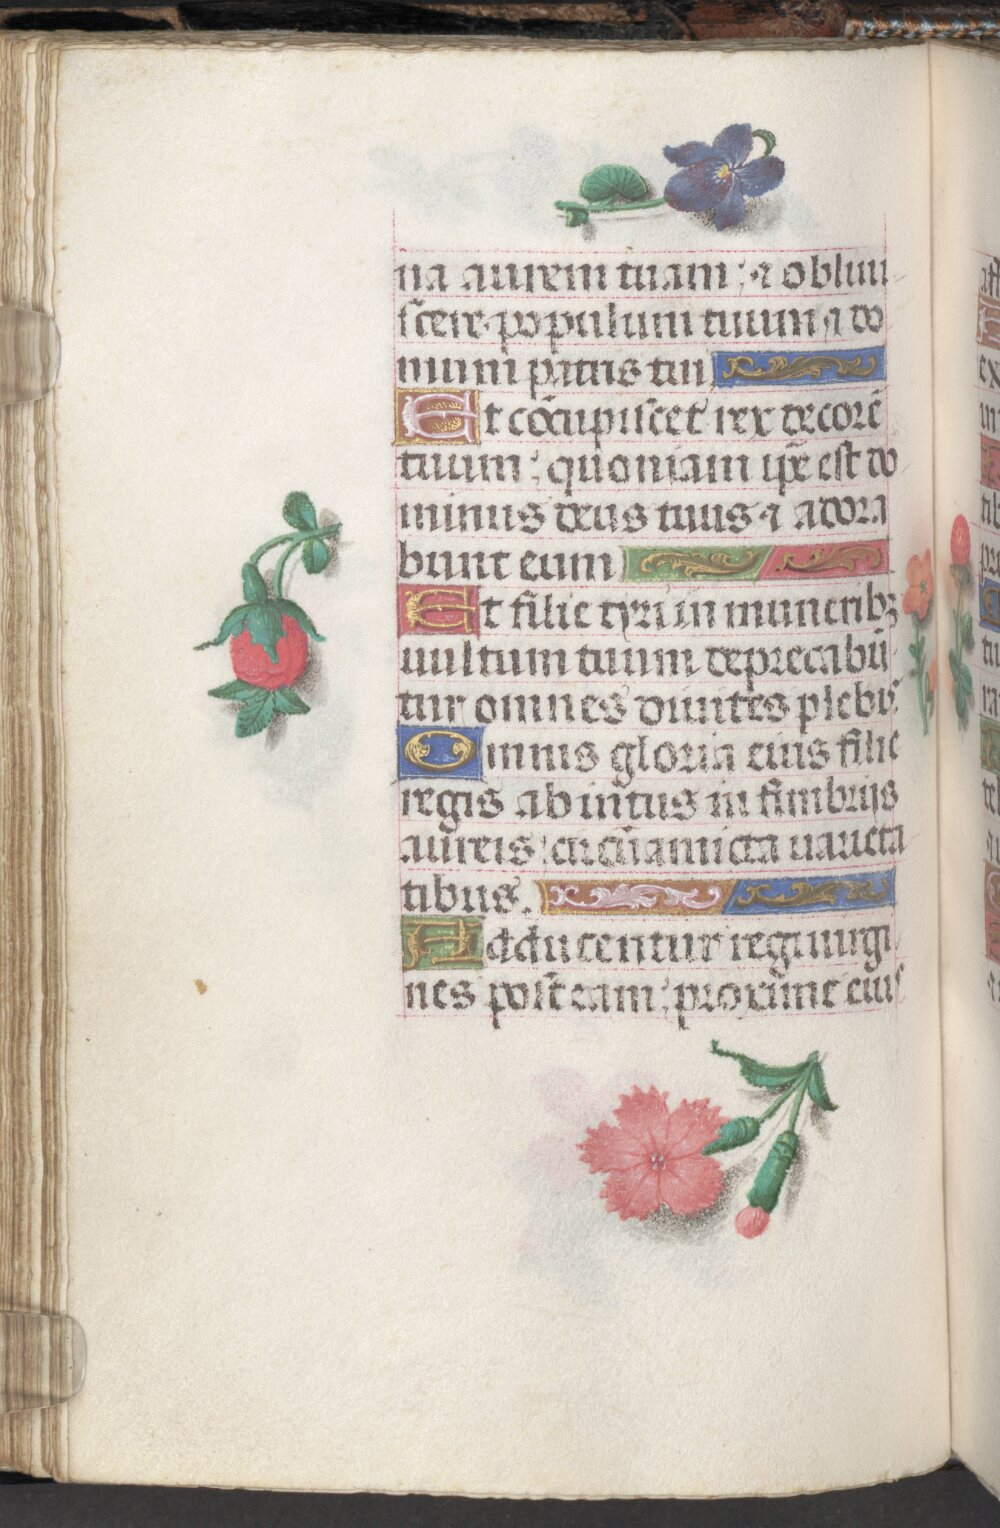 na aurem tuam: ⁊ obliui
scere populum tuum ⁊ do
mum patris tui
Et cōcupiscet rex decorē
tuum: quoniam ip̄e est do
minus deus tuus ⁊ adora
bunt eum
Et filie tyri in munerib₉
uultum tuum deprecabū
tur omnes diuites plebis
Omnis gloria eius filie
regis ab intus in fimbrijs
aureis: circūamicta uarieta
tibus.
Adducentur regi uirgi
nes post eam: proxime eius